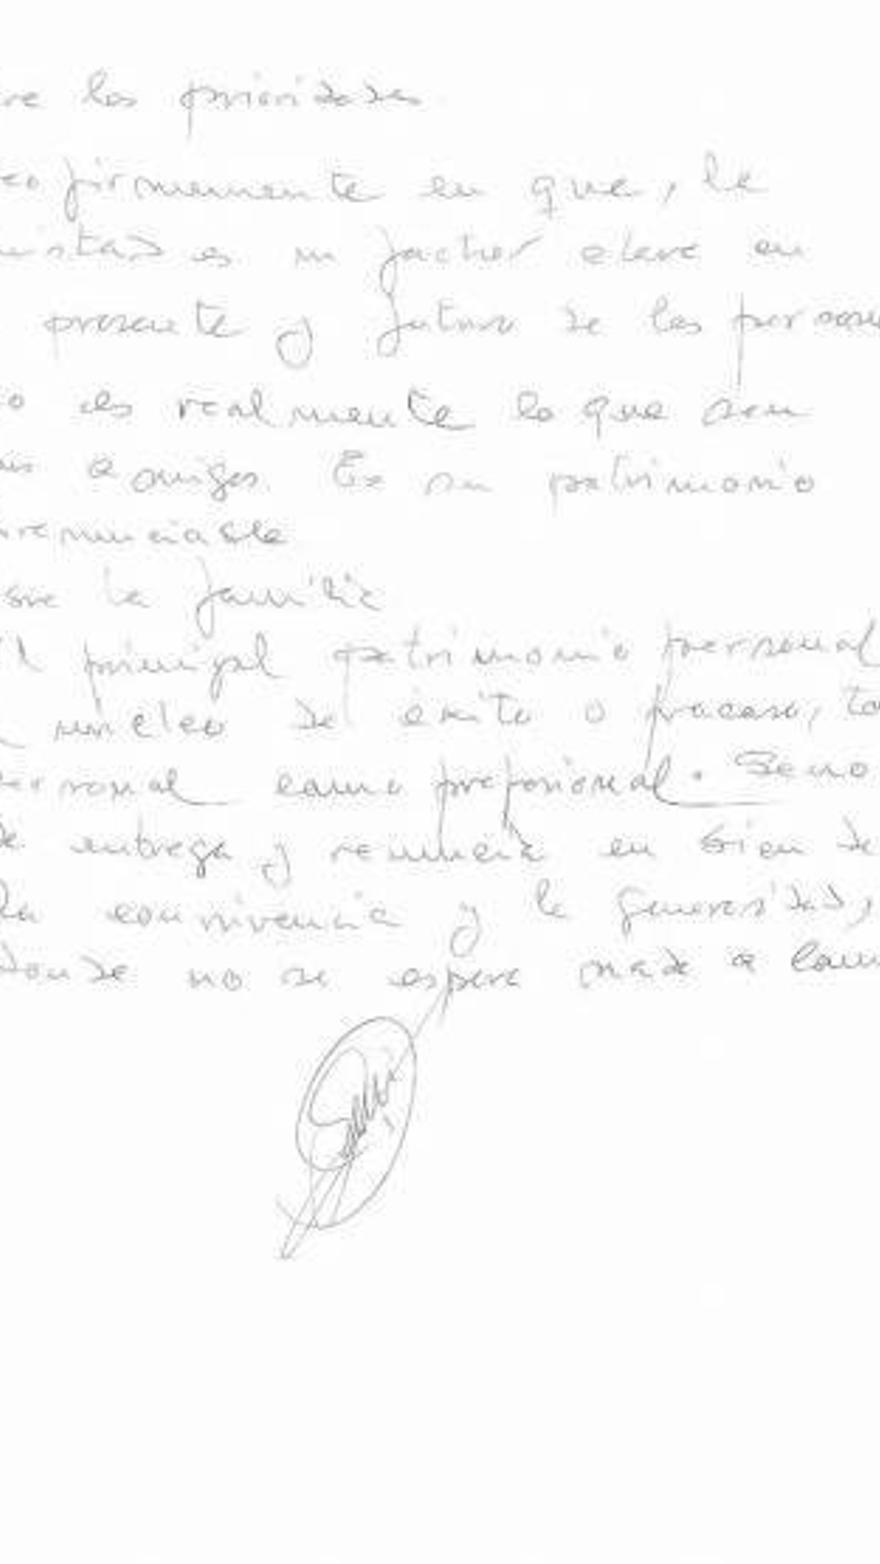 re las prioridades
eo firmemente en que, la
mistad es un factor clave en
presente y futuro de las person
o es realmente lo que son
us amigos. Es su patrimonio
rrenunciable
bre la familia
El principal patrimonio personal
nucleo de exito o fracaso, ta
personal como profesional. Seno
de entrega y renuncia en bien de
la convivencia y la generosidad,
donde no se espera nada a cam